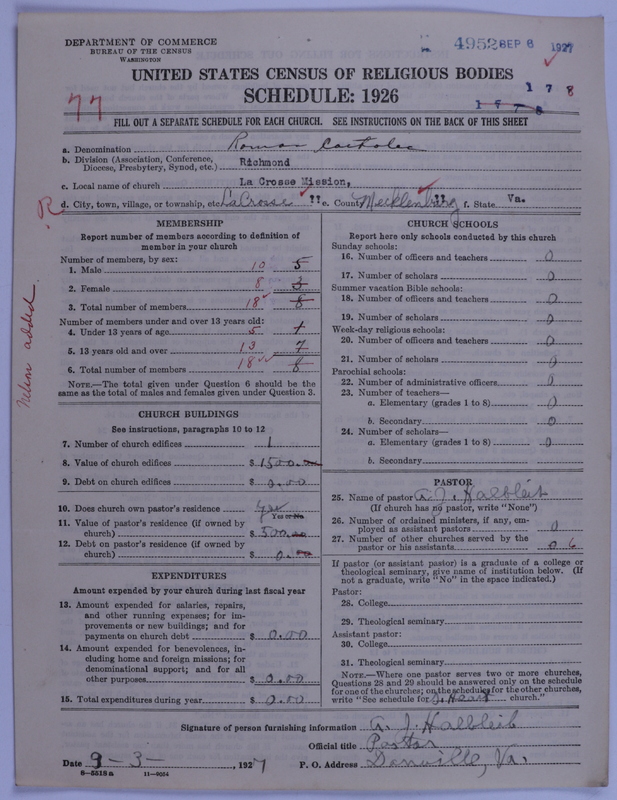 DEPARTMENT OF COMMERCE
BUREAU OF THE CENSUS
WASHINGTON
4952 SEP 6 1927
UNITED STATES CENSUS OF RELIGIOUS BODIES
SCHEDULE: 1926
77
1 7 8
FILL OUT A SEPARATE SCHEDULE FOR EACH CHURCH. SEE INSTRUCTIONS ON THE BACK OF THIS SHEET
a. Denomination Roman Catholic
b. Division (Association, Conference, Diocese, Presbytery, Synod, etc.) Richmond
c. Local name of church La Crosse Mission,
d. City, town, village, or township, etc. LaCrosse ?? e. County Mecklenburg ?? f. State Va.
R
Nelson added.
MEMBERSHIP
Report number of members according to definition of
member in your church
Number of members, by sex:
1. Male 10 5
2. Female 8 3
3. Total number of members 18 8
Number of members under and over 13 years old:
4. Under 13 years of age 5 1
5. 13 years old and over 13 7
6. Total number of members 18 8
NOTE.—The total given under Question 6 should be the
same as the total of males and females given under Question 3.
CHURCH BUILDINGS
See instructions, paragraphs 10 to 12
7. Number of church edifices 1
8. Value of church edifices $ 1500.00
9. Debt on church edifices $ 0.00
10. Does church own pastor's residence yes
Yes or No
11. Value of pastor's residence (if owned by
church) $ 500.00
12. Debt on pastor's residence (if owned by
church) $ 0.00
EXPENDITURES
Amount expended by your church during last fiscal year
13. Amount expended for salaries, repairs,
and other running expenses; for im-
provements or new buildings; and for
payments on church debt $ 0.00
14. Amount expended for benevolences, in-
cluding home and foreign missions; for
denominational support; and for all
other purposes $ 0.00
15. Total expenditures during year $ 0.00
CHURCH SCHOOLS
Report here only schools conducted by this church
Sunday schools:
16. Number of officers and teachers 0
17. Number of scholars 0
Summer vacation Bible schools:
18. Number of officers and teachers 0
19. Number of scholars 0
Week-day religious schools:
20. Number of officers and teachers 0
21. Number of scholars 0
Parochial schools:
22. Number of administrative officers 0
23. Number of teachers—
a. Elementary (grades 1 to 8) 0
b. Secondary 0
24. Number of scholars—
a. Elementary (grades 1 to 8) 0
b. Secondary
PASTOR
25. Name of pastor A. J. Halbleib
(If church has no pastor, write "None")
26. Number of ordained ministers, if any, em-
ployed as assistant pastors 0
27. Number of other churches served by the
pastor or his assistants 0 6
If pastor (or assistant pastor) is a graduate of a college or
theological seminary, give name of institution below. (If
not a graduate, write "No" in the space indicated.)
Pastor:
28. College
29. Theological seminary
Assistant pastor:
30. College
31. Theological seminary
NOTE.—Where one pastor serves two or more churches,
Questions 28 and 29 should be answered only on the schedule
for one of the churches; on the schedules for the other churches,
write "See schedule for S. Heart church."
Signature of person furnishing information A. J. Halbleib
Official title Pastor
Date 9-3- , 1927 P. O. Address Danville, Va.
8-5518a 11-9054